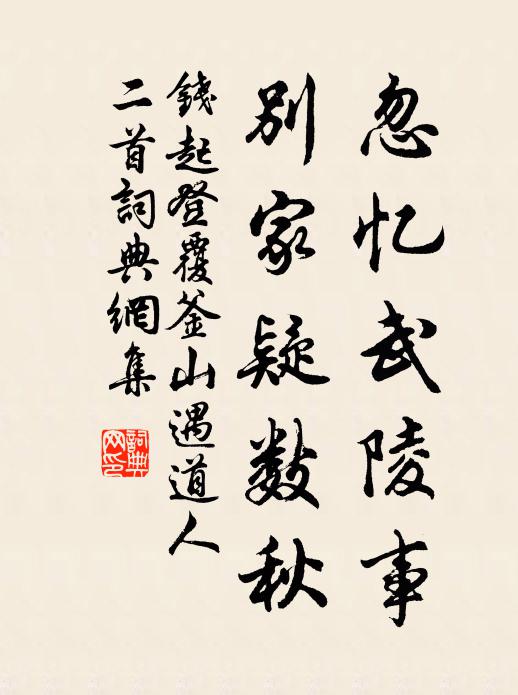 忽忆武陵事
别家疑数秋
錢起登覆釜山遇道人
二首詞典網集
詞典
网印